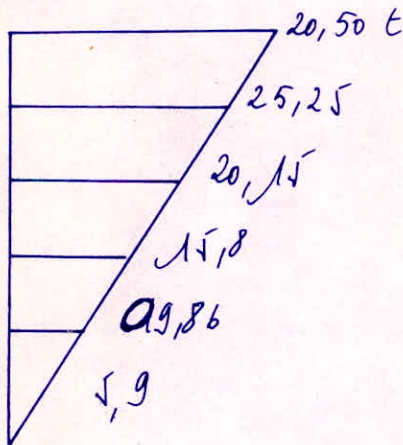 20,50 t
25,25
20,15
15,8
9,86
5,9